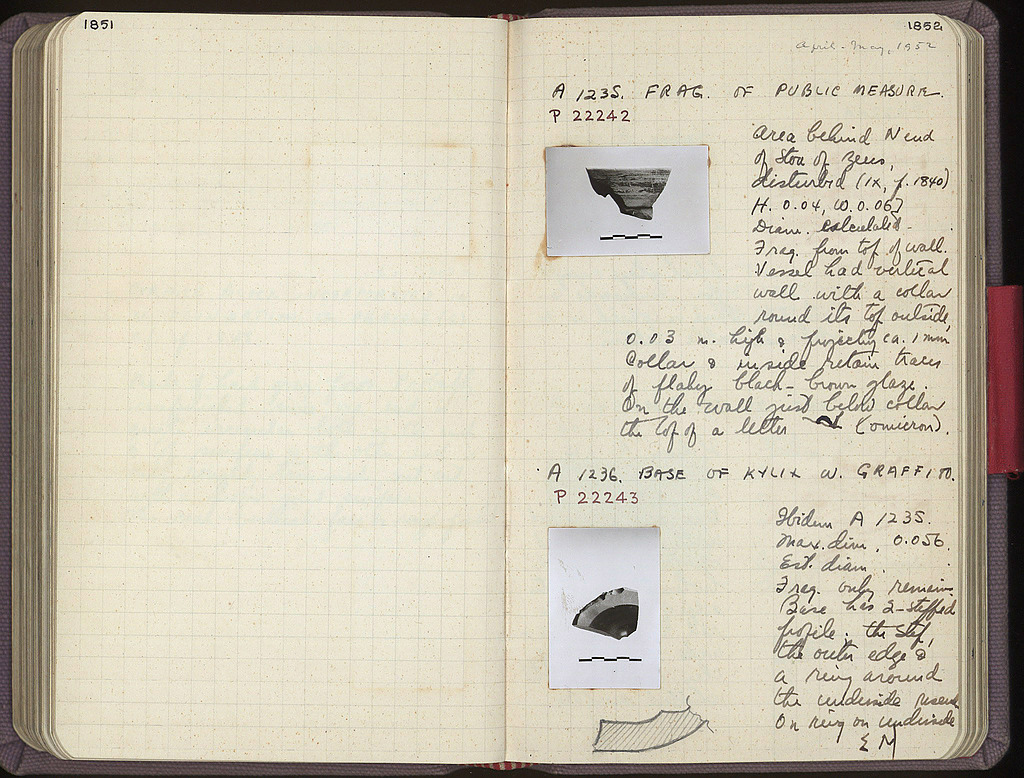 1851
1852
April - May, 1952
A 1235. FRAG. OF PUBLIC MEASURE.
P 22242
Area behind N end
of Stoa of Zeus,
disturbed (IX, p. 1840)
H. 0.04, W. 0.067
Diam. calculated -
Frag. from top of wall.
Vessel had vertical
wall with a collar
round its top outside,
0.03 m. high & projecting ca. 1 mm
Collar & inside retain traces
of flaky black-brown glaze.
On the wall just below collar
the top of a letter (omicron).
A 1236. BASE OF KYLIX W. GRAFFITO.
P 22243
Ibidem A 1235.
Max. dim. 0.056
Est. diam.
Frag. only remains
Base has 2-stepped
profile, the step,
the outer edge &
a ring around
the underside
On ring on underside
Σ Μ